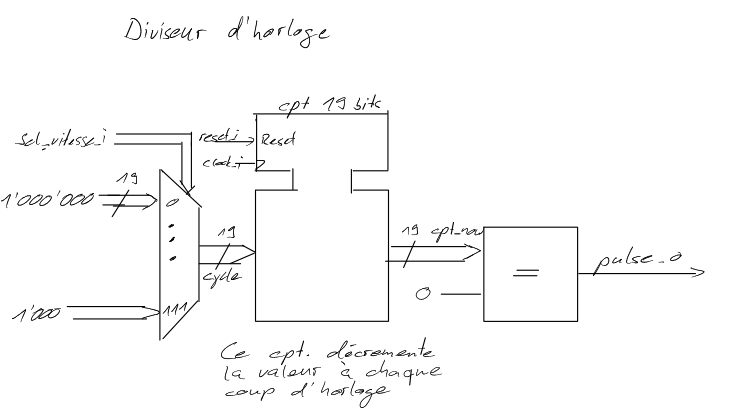 Diviseur d'horloge
cpt 19 bits
sel_vitesse_i
reset_i
Reset
clock_i
19
1'000'000
0
19
cycle
19
cpt_now
=
pulse_o
0
1'000
111
Ce cpt. décremente
la valeur à chaque
coup d'horloge